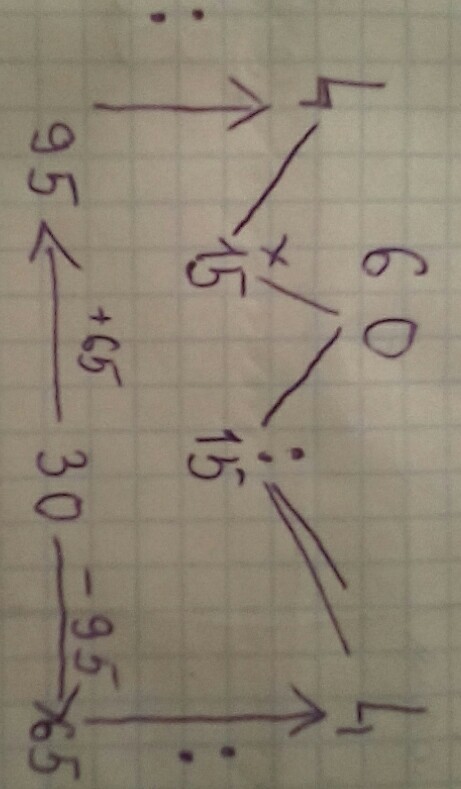 60
4 4
× :
15 15
: :
+65 -95
95 30 65